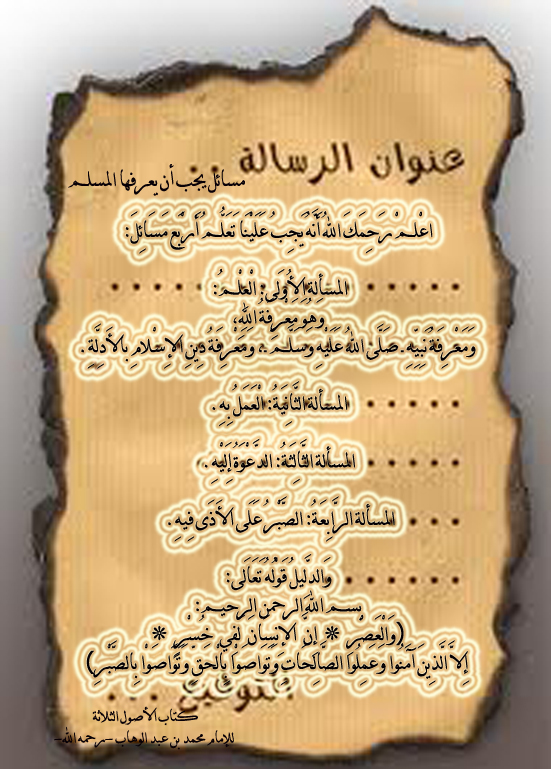 عنوان الرسالة . .
مسائل يجب أن يعرفها المسلم
اعْلَمْ رَحِمَكَ اللهُ أَنَّهُ يَجِبُ عَلَيْنَا تَعَلُّمُ أَرْبَعِ مَسَائِلَ:
. . . . . المسَألةُ الأُولَى: الْعِلْمُ: . . . . .
وَهُوَ مَعْرِفَةُ اللهِ،
وَمَعْرِفَةُ نَبِيِّهِ ـ صَلَّى اللهُ عَلَيْهِ وَسَلَّمَ ـ، وَمَعْرِفَةُ دِينِ الإِسْلامِ بِالأَدِلَّةِ .
. . . . . المسَألةُ الثَّانِيَةُ: الْعَمَلُ بِهِ .
. . . . . المسألة الثَّالِثَةُ: الدَّعْوَةُ إِلَيْهِ .
. . . المسألة الرَّابِعَةُ: الصَّبْرُ عَلَى الأَذَى فِيهِ .
. . . . . . وَالدَّلِيلُ قَوْلُهُ تَعَالَى:
بِسمِ اللهِ الرحمنِ الرحيمِ:
(وَالْعَصْرِ * إِنَّ الإِنسَانَ لَفِي خُسْرٍ *
إِلاَّ الَّذِينَ آمَنُوا وَعَمِلُوا الصَّالِحَاتِ وَتَوَاصَوْا بِالْحَقِّ وَتَوَاصَوْا بِالصَّبْرِ)
التوقيع . . .
كتاب الأصول الثلاثة
للإمام محمد بن عبد الوهاب –رحمه الله–